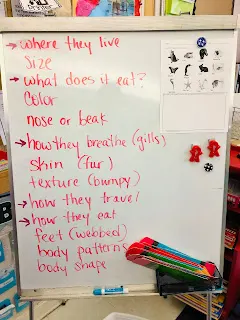 Printer
→ where they live
Size
→ what does it eat?
Color
nose or beak
→ how they breathe (gills)
skin (fur)
texture (bumpy)
→ how they travel
→ how they eat
feet (webbed)
body patterns
body shape